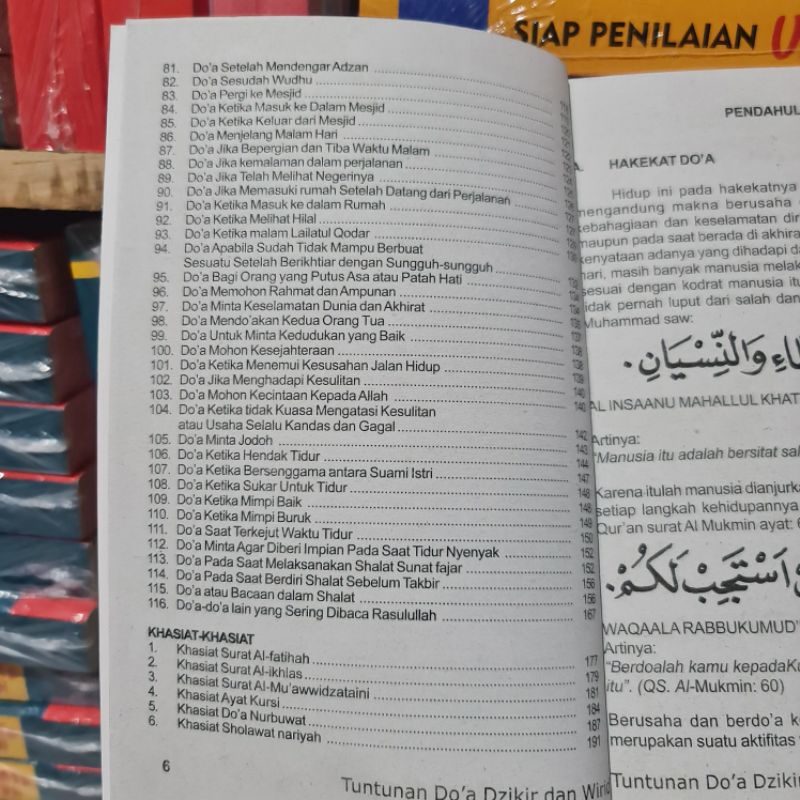 SIAP PENILAIAN
81. Do'a Setelah Mendengar Adzan
82. Do'a Sesudah Wudhu
83. Do'a Pergi ke Mesjid
84. Do'a Ketika Masuk ke Dalam Mesjid
85. Do'a Ketika Keluar dari Mesjid
86. Do'a Menjelang Malam Hari
87. Do'a Jika Bepergian dan Tiba Waktu Malam
88. Do'a Jika kemalaman dalam perjalanan
89. Do'a Jika Telah Melihat Negerinya
90. Do'a Jika Memasuki rumah Setelah Datang dari Perjalanan
91. Do'a Ketika Masuk ke dalam Rumah
92. Do'a Ketika Melihat Hilal
93. Do'a Ketika malam Lailatul Qodar
94. Do'a Apabila Sudah Tidak Mampu Berbuat
Sesuatu Setelah Berikhtiar dengan Sungguh-sungguh
95. Do'a Bagi Orang yang Putus Asa atau Patah Hati
96. Do'a Memohon Rahmat dan Ampunan
97. Do'a Minta Keselamatan Dunia dan Akhirat
98. Do'a Mendo'akan Kedua Orang Tua
99. Do'a Untuk Minta Kedudukan yang Baik 137
100. Do'a Mohon Kesejahteraan 138
101. Do'a Ketika Menemui Kesusahan Jalan Hidup 138
102. Do'a Jika Menghadapi Kesulitan 139
103. Do'a Mohon Kecintaan Kepada Allah 140
104. Do'a Ketika tidak Kuasa Mengatasi Kesulitan 140
atau Usaha Selalu Kandas dan Gagal 142
105. Do'a Minta Jodoh 143
106. Do'a Ketika Hendak Tidur 144
107. Do'a Ketika Bersenggama antara Suami Istri 147
108. Do'a Ketika Sukar Untuk Tidur 148
109. Do'a Ketika Mimpi Baik 148
110. Do'a Ketika Mimpi Buruk 149
111. Do'a Saat Terkejut Waktu Tidur 150
112. Do'a Minta Agar Diberi Impian Pada Saat Tidur Nyenyak 152
113. Do'a Pada Saat Melaksanakan Shalat Sunat fajar 152
114. Do'a Pada Saat Berdiri Shalat Sebelum Takbir 156
115. Do'a atau Bacaan dalam Shalat 156
116. Do'a-do'a lain yang Sering Dibaca Rasulullah 167
KHASIAT-KHASIAT
1. Khasiat Surat Al-fatihah 177
2. Khasiat Surat Al-ikhlas 179
3. Khasiat Surat Al-Mu'awwidzataini 181
4. Khasiat Ayat Kursi 184
5. Khasiat Do'a Nurbuwat 187
6. Khasiat Sholawat nariyah 191
6
Tuntunan Do'a Dzikir dan Wirid
PENDAHUL
A. HAKEKAT DO'A
Hidup ini pada hakekatnya
mengandung makna berusaha
kebahagiaan dan keselamatan dir
maupun pada saat berada di akhira
kenyataan adanya yang dihadapi da
hari, masih banyak manusia melak
sesuai dengan kodrat manusia itu
tidak pernah luput dari salah dan
Muhammad saw:
وَالنِّسْيَانِ.
AL INSAANU MAHALLUL KHAT
Artinya:
"Manusia itu adalah bersitat sal
Karena itulah manusia dianjurka
setiap langkah kehidupannya
Qur'an surat Al Mukmin ayat: 6
اَسْتَجِبْ لَكُمْ.
WAQAALA RABBUKUMUD'
Artinya:
"Berdoalah kamu kepadaKu
itu". (QS. Al-Mukmin: 60)
Berusaha dan berdo'a k
merupakan suatu aktifitas
Tuntunan Do'a Dzikir